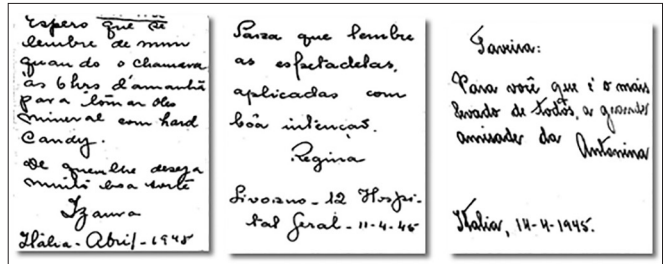 Espero que se
lembre de mim
quando o chamava
às 6 hrs d'amanhã
para tomar oleo
mineral com hard
Candy.
De quem lhe deseja
muita boa sorte
Izaura
Itália - Abril - 1945
Para que lembre
as espetadelas,
aplicadas com
bôa intenção.
Regina
Livorno - 12 Hospi-
tal Geral - 11-4-45
Taveira:
Para você que é o mais
levado de todos, a grande
amizade da Antonina
Itália, 14-4-1945.